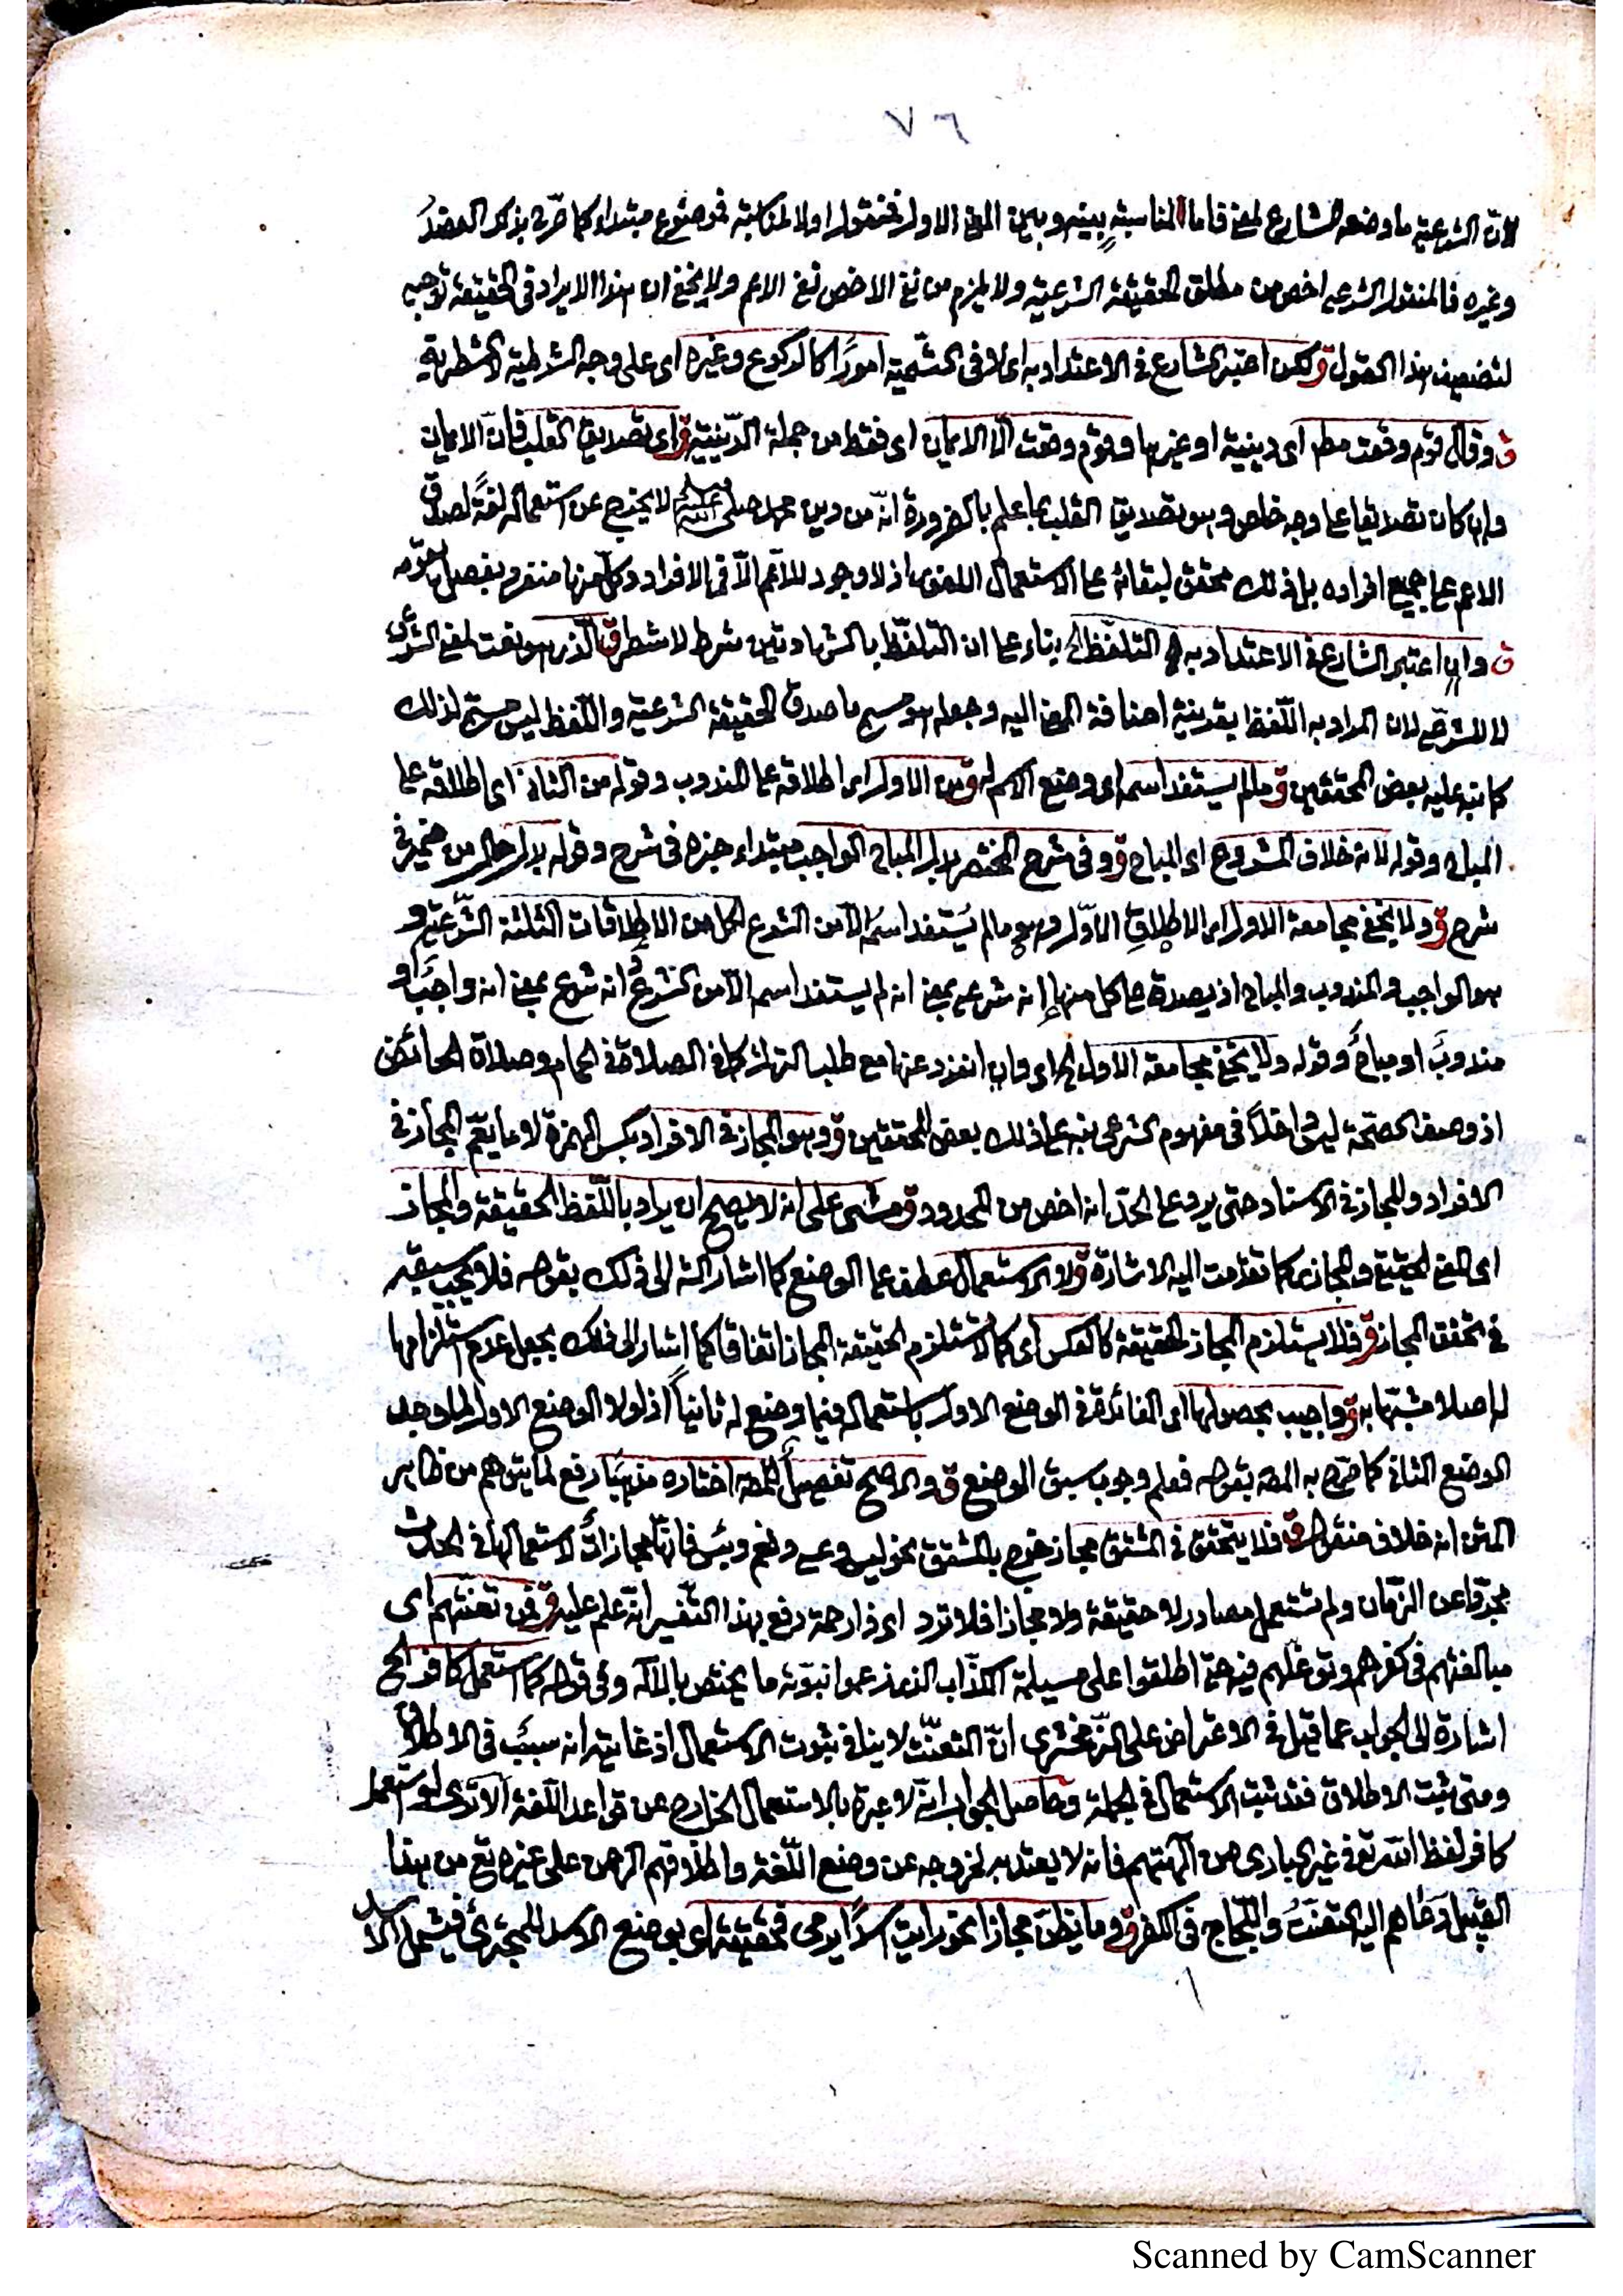 ٧٦
لانّ الشرعية ما وضعه الشارع لمعنى فاما لمناسبةٍ بينه وبين المعنى الاول فمنقول او لا لمناسبة فموضوع مبتداء كما صرّح بذكر العضدُ
وغيره فالمنقول الشرعى اخص من مطلق الحقيقة الشرعية ولا يلزم من نفى الاخص نفى الاعم ولا يخفى ان هذا الايراد فى الحقيقة توجيه
لتضعيف هذا القول ق ولكن اعتبر الشارع فى الاعتداد به اى لا فى التسمية امورًا كالركوع وغيره اى على وجه الشرطية لا الشطرية
ق وقال قوم وقعت مطر اى دينية او غيرها وقوم وقعت الّا الايمان اى فقط من جملة الدّينية ق اى تصديق القلب فانّ الايمان
وان كان تصديقا على وجه خاص وهو تصديق القلب بما علم بالضرورة انّه من دين محمد صلى الله عليه وسلم لا يخرج عن استعماله لغةً لصدق
الاعم على جميع افراده بل ذلك محقق لبقائه على الاستعمال اللغوى اذ لا وجود للاعم الّا فى الافراد وكل منها منفرد بفصل يقوّمه
ق وان اعتبر الشارع فى الاعتداد به التلفّظ الخ بناء على ان التلفّظ بالشهادتين شرط لا شطر ق الذى هو نعت لمعنى الشرعى
لا للشرعى لان المراد به اللّفظ بقرينة اضافة المعنى اليه وجعله هو مسمى ما صدق الحقيقة الشرعية واللّفظ ليس مسمى لذلك
كما نبه عليه بعض المحققين ق وما لم يستفد اسمه اى وضع الاسم له ق من الاول اى اطلاقه على المندوب وقوله من الثانى اى اطلاقه على
المباح وقوله لانه خلاف المشروع اى المباح ق وفى شرح المختصر بدل المباح الواجب مبتداء خبره فى شرح وقوله بدل حال من ضمير فى
شرح ق ولا يخفى مجامعة الاول اى الاطلاقِ الاوّل وهو ما لم يُستفد اسمُه الّا من الشرع لكل من الاطلاقات الثلثة الشّرعية و
هو الواجب والمندوب والمباح اذ يصدق على كل منها انه شرعى بمعنى انه لم يستفد اسمه الّا من الشرع انه شرع بمعنى انه واجبٌ او
مندوبٌ او مباحٌ وقوله ولا يخفى مجامعة الاول الخ اى وان انفرد عنها مع طلب الترك كما فى الصلاة فى الحمام وصلاة الحائض
اذ وصف الصحّة ليس داخلًا فى مفهوم الشرعى نبه على ذلك بعض المحققين ق وهو المجاز فى الافراد بكسر الهمزة لا ما يعمّ المجاز فى
الافراد والمجاز فى الاسناد حتى يرد على الحدّ انه اخص من المحدود ق ومشى على انه لا يصح ان يراد باللّفظ الحقيقة والمجاز
اى المعنى الحقيقى والمجازى كما تقدّمت اليه الاشارة ق ولا الاستعمال عطف على الوضع كما اشار الشه الى ذلك بقوله فلا يجب سبقه
فى تحقق المجاز ق فلا يستلزم المجاز الحقيقة كالعكس اى كما لا تستلزم الحقيقة المجاز اتفاقا كما اشار الى ذلك بجعل عدم استلزامها
له اصلا مشبّها به ق واجيب بحصولها اى الفائدة فى الوضع الاول باستعماله فيما وضع له ثانيًا اذ لولا الوضع الاول لما وجد
الوضع الثانى كما صرّح به المصه بقوله فعلم وجوب سبق الوضع ق والاصح تفصيلٌ للمصه اختاره مذهبًا رفع لما يتوهم من ظاهر
المتن انه خلاف منقول ق فلا يتحقق فى المشتق مجاز خرج بالمشتق نحو ليس وعسى ونعم وبئس فانها مجازاتٌ لاستعمالها فى الحدث
مجرّدا عن الزّمان ولم تستعمل مصادر لا حقيقة ولا مجازا فلا ترد اى ذا رحمة دفع بهذا التفسير انّه علم عليه ق فمن تعنّتهم اى
مبالغتهم فى كفرهم وتوغّلهم فيه حتى اطلقوا على مسيلمة الكذّاب الذى زعموا نبوّته ما يختص بالاله وفى قوله كما استعمل كافر الخ
اشارة الى الجواب عما قيل فى الاعتراض على الزّمخشرى انّ التعنّت لا ينافى ثبوت الاستعمال اذ غايته انه سببٌ فى الاطلاق
ومتى ثبت الاطلاق فقد ثبت الاستعمال فى الجملة وحاصل الجواب انّه لا عبرة بالاستعمال الخارج عن قواعد اللّغة الا ترى لو استعمل
كافر لفظ الله تعالى فى غير البارى من آلهتهم فانه لا يعتد به لخروجه عن وضع اللّغة واطلاقهم الرحمن على غيره تع من هذا
القبيل دعاهم اليه التعنّتُ واللّجاج فى الكفر ق وما يظنّ مجازا نحو رايت اسدًا يرمى فحقيقة اى بوضع الاسد للمجترئ فيشمل الاسد
Scanned by CamScanner